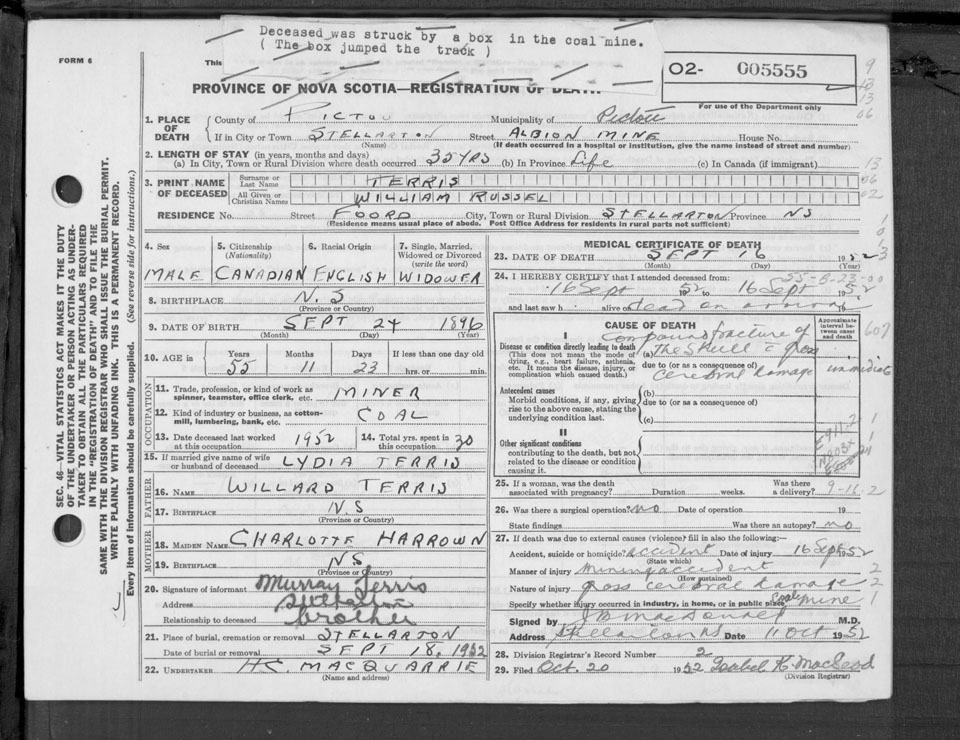 Deceased was struck by a box in the coal mine.
( The box jumped the track )
FORM 6
This
O2- 005555
PROVINCE OF NOVA SCOTIA—REGISTRATION OF DEATH
For use of the Department only
9
13
13
06
1. PLACE OF DEATH
County of PICTOU Municipality of Pictou
If in City or Town STELLARTON Street ALBION MINE House No.
(Name) (If death occurred in a hospital or institution, give the name instead of street and number)
2. LENGTH OF STAY (in years, months and days)
(a) In City, Town or Rural Division where death occurred 35 YRS (b) In Province Life (c) In Canada (if immigrant)
13
06
02
3. PRINT NAME OF DECEASED
Surname or Last Name TERRIS
All Given or Christian Names WILLIAM RUSSEL
RESIDENCE No. Street FOORD City, Town or Rural Division STELLARTON Province NS
(Residence means usual place of abode. Post Office Address for residents in rural parts not sufficient)
4. Sex 5. Citizenship (Nationality) 6. Racial Origin 7. Single, Married, Widowed or Divorced (write the word)
MALE CANADIAN ENGLISH WIDOWER
8. BIRTHPLACE N.S
(Province or Country)
9. DATE OF BIRTH SEPT 24 1896
(Month) (Day) (Year)
10. AGE in Years Months Days If less than one day old
55 11 23 hrs. or min.
OCCUPATION
11. Trade, profession, or kind of work as spinner, teamster, office clerk, etc. MINER
12. Kind of industry or business, as cotton-mill, lumbering, bank, etc. COAL
13. Date deceased last worked at this occupation 1952 14. Total yrs. spent in this occupation 30
15. If married give name of wife or husband of deceased LYDIA TERRIS
FATHER
16. NAME WILLARD TERRIS
17. BIRTHPLACE N.S
(Province or Country)
MOTHER
18. MAIDEN NAME CHARLOTTE HARROWN
19. BIRTHPLACE NS
(Province or Country)
20. Signature of informant Murray Terris
Address Stellarton
Relationship to deceased brother
21. Place of burial, cremation or removal STELLARTON
Date of burial or removal SEPT 18, 1952
22. UNDERTAKER H.C. MACQUARRIE
(Name and address)
MEDICAL CERTIFICATE OF DEATH
23. DATE OF DEATH SEPT 16 1952
(Month) (Day) (Year)
24. I HEREBY CERTIFY that I attended deceased from:
16 Sept 1952 to 16 Sept 1952
and last saw h alive on dead on arrival 19
CAUSE OF DEATH
Approximate interval between onset and death
I
Disease or condition directly leading to death
(This does not mean the mode of dying, e.g., heart failure, asthenia, etc. It means the disease, injury, or complication which caused death.)
(a) Compound fracture of the skull c gross
due to (or as a consequence of)
cerebral damage immediate
607
Antecedent causes
Morbid conditions, if any, giving rise to the above cause, stating the underlying condition last.
(b)
due to (or as a consequence of)
(c)
II
Other significant conditions
contributing to the death, but not related to the disease or condition causing it.
E911.2
N803X
25. If a woman, was the death associated with pregnancy? Duration weeks. Was there a delivery? 9-16.2
26. Was there a surgical operation? no Date of operation 19
State findings Was there an autopsy? no
27. If death was due to external causes (violence) fill in also the following:
Accident, suicide or homicide? accident Date of injury 16 Sept 1952
(State which)
Manner of injury Mining accident 2
(How sustained)
Nature of injury gross cerebral damage 2
Specify whether injury occurred in industry, in home, or in public place Coal mine 1
Signed by J B MacDonald M.D.
Address Stellarton NS Date 11 Oct 1952
28. Division Registrar's Record Number 2
29. Filed Oct. 20 1952 Isabel K. MacLeod
(Division Registrar)
SEC. 46—VITAL STATISTICS ACT MAKES IT THE DUTY
OF THE UNDERTAKER OR PERSON ACTING AS UNDER-
TAKER TO OBTAIN ALL THE PARTICULARS REQUIRED
IN THE "REGISTRATION OF DEATH" AND TO FILE THE
SAME WITH THE DIVISION REGISTRAR WHO SHALL ISSUE THE BURIAL PERMIT.
WRITE PLAINLY WITH UNFADING INK. THIS IS A PERMANENT RECORD.
Every item of information should be carefully supplied. (See reverse side for instructions.)